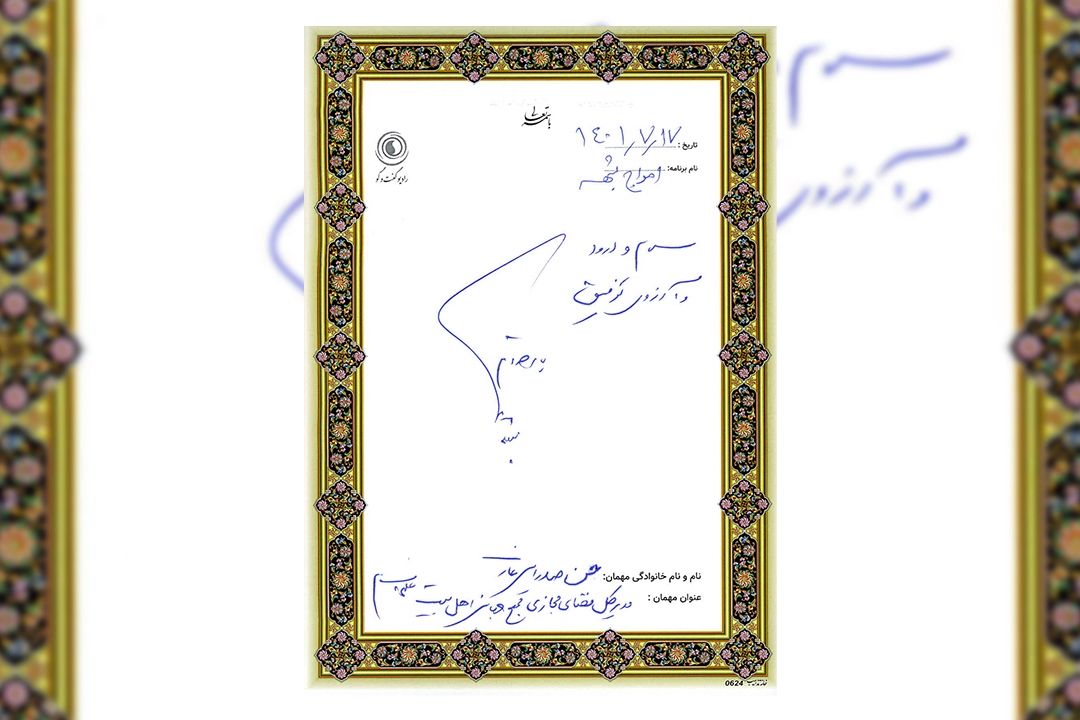 باسمه تعالی
تاریخ: ۱٤۰۱/۷/۱۷
رادیو گفت و گو
نام برنامه: امواج
سلام و درود
و با آرزوی توفیق
با احترام
نام و نام خانوادگی مهمان: صدرایی عارف
عنوان مهمان: مدیر کل فضای مجازی مجمع جهانی اهل بیت علیهم السلام
0624